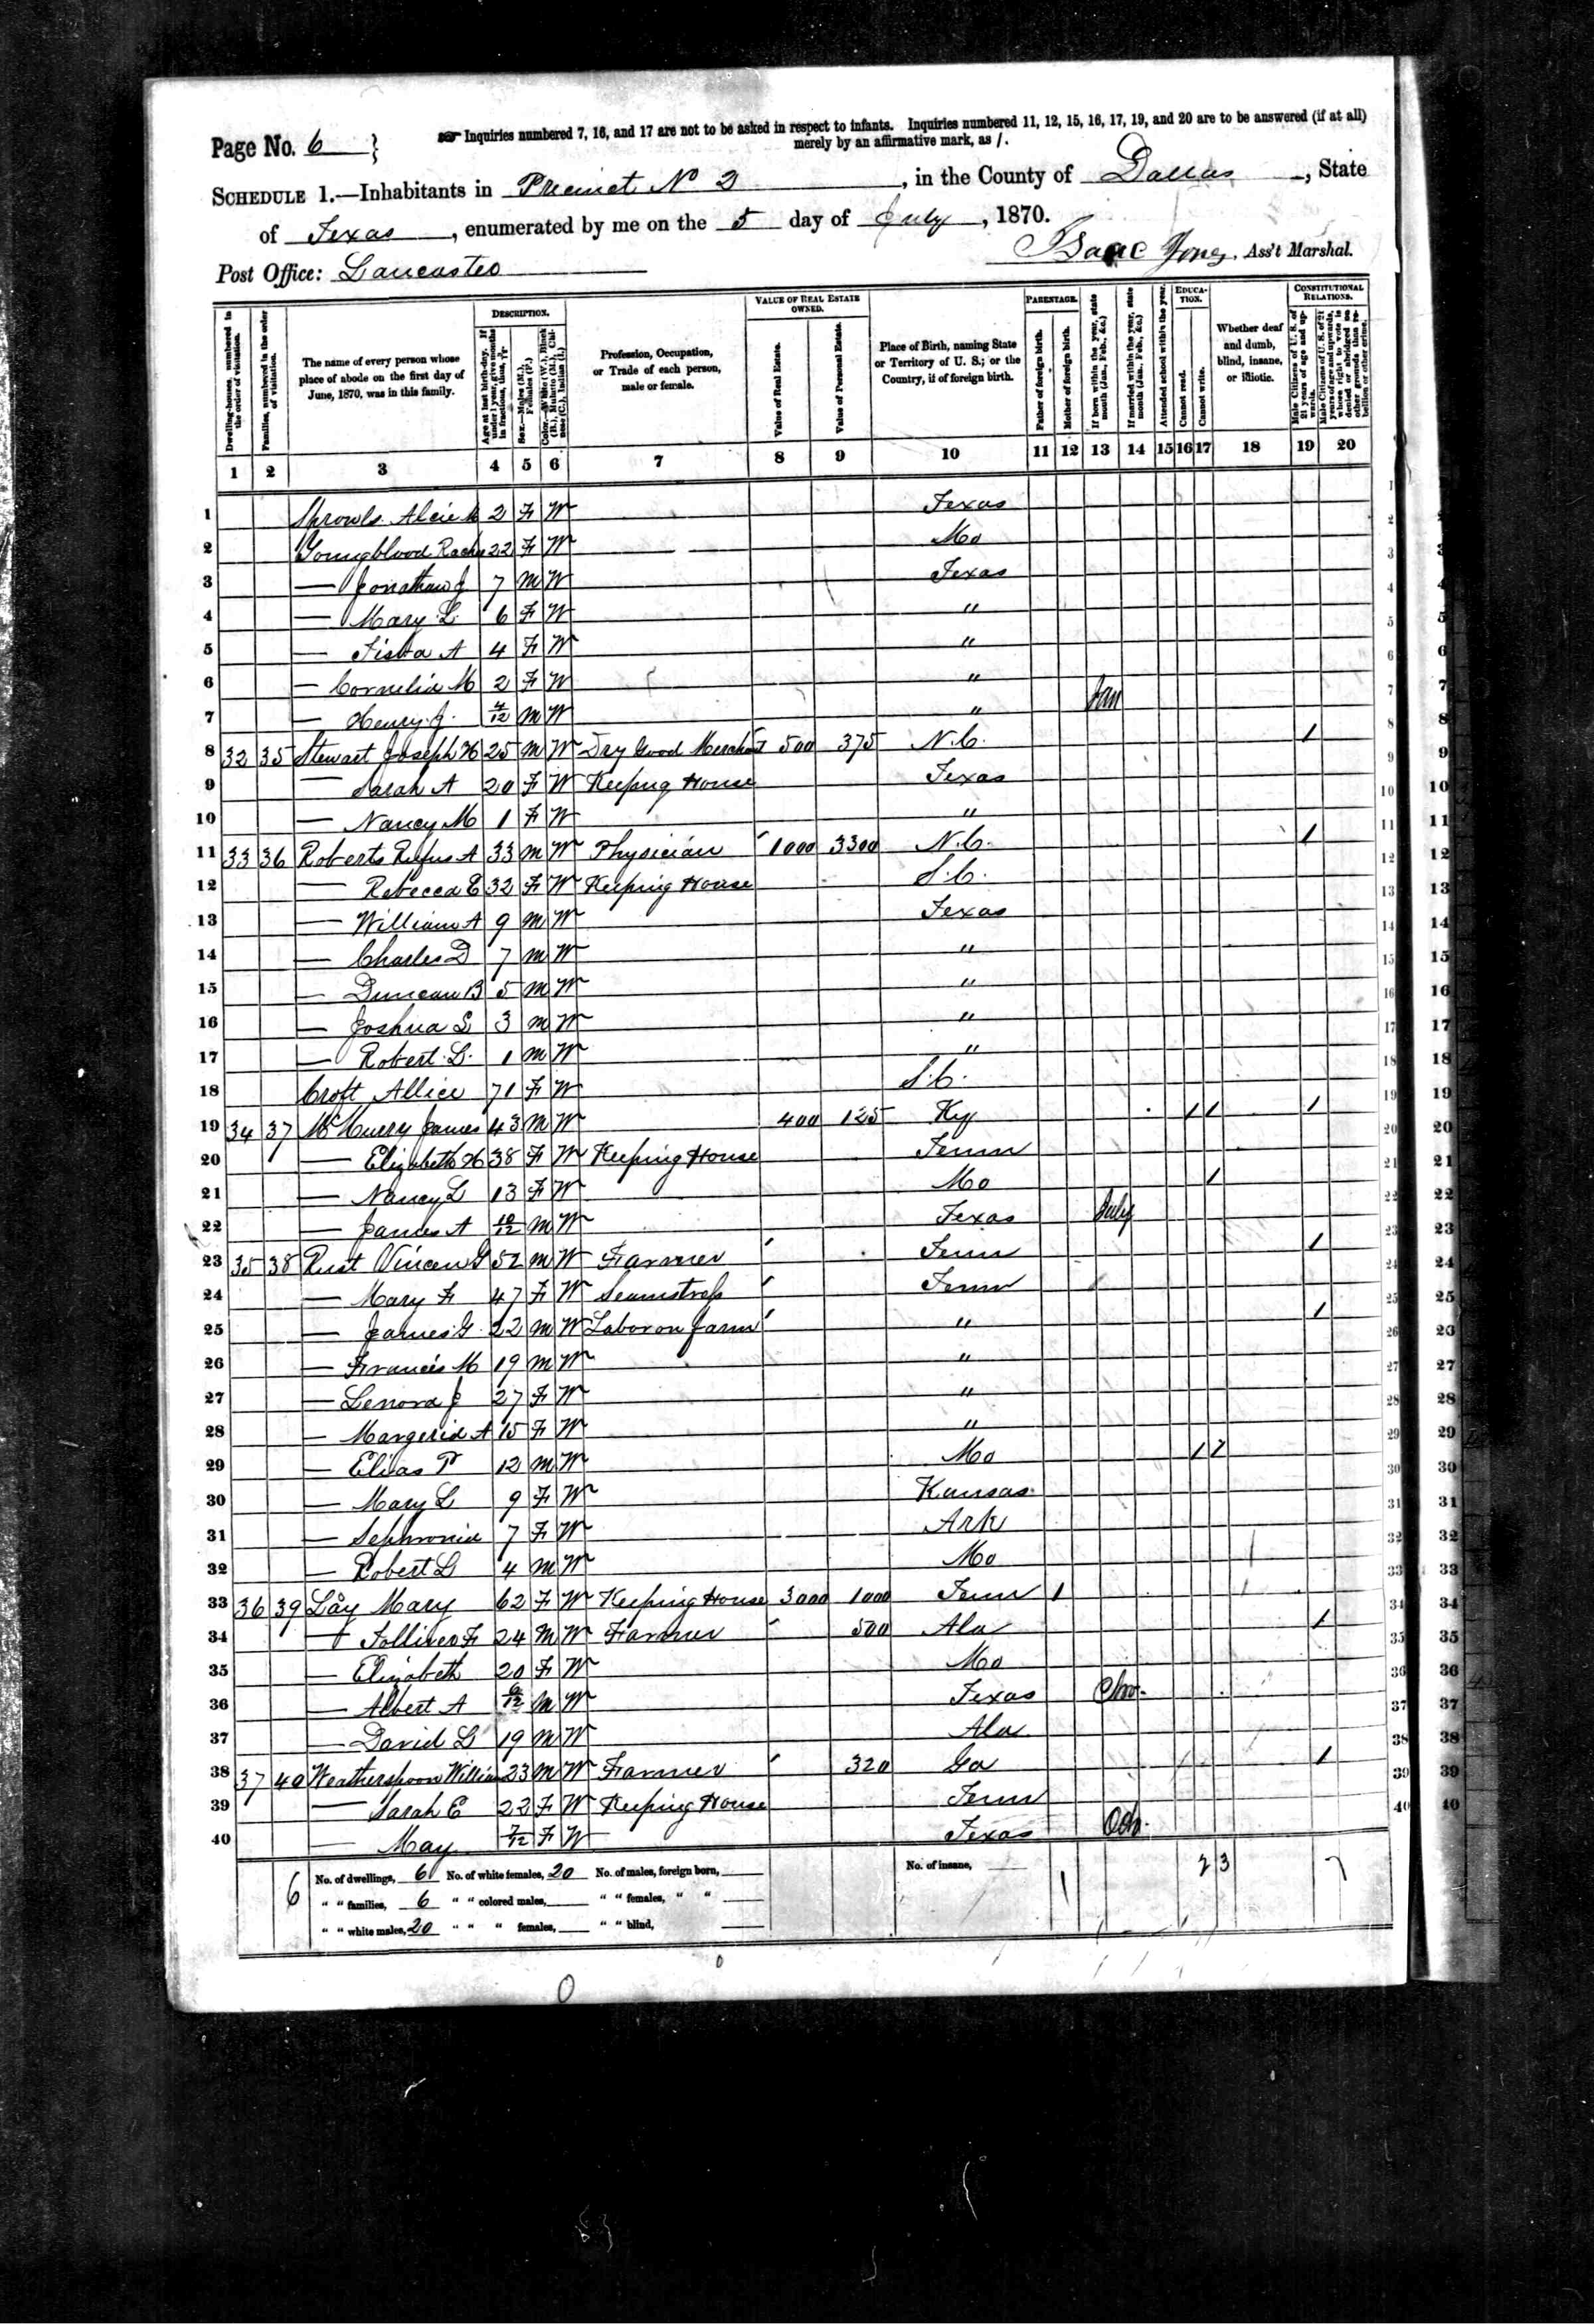 Page No. 6
Inquiries numbered 7, 16, and 17 are not to be asked in respect to infants. Inquiries numbered 11, 12, 15, 16, 17, 19, and 20 are to be answered (if at all)
merely by an affirmative mark, as /.
SCHEDULE 1.—Inhabitants in Precinct No 2, in the County of Dallas, State
of Texas, enumerated by me on the 5 day of July, 1870.
Post Office: Lancaster
Isaac Jones, Ass't Marshal.
Dwelling-houses, numbered in the order of visitation.
Families, numbered in the order of visitation.
The name of every person whose place of abode on the first day of June, 1870, was in this family.
DESCRIPTION.
Age at last birth-day. If under 1 year, give months in fractions, thus,
Sex.—Males (M.), Females (F.)
Color.—White (W.), Black (B.), Mulatto (M.), Chinese (C.), Indian (I.)
Profession, Occupation, or Trade of each person, male or female.
VALUE OF REAL ESTATE OWNED.
Value of Real Estate.
Value of Personal Estate.
Place of Birth, naming State or Territory of U. S.; or the Country, if of foreign birth.
PARENTAGE.
Father of foreign birth.
Mother of foreign birth.
If born within the year, state month (Jan., Feb., &c.)
If married within the year, state month (Jan., Feb., &c.)
Attended school within the year.
EDUCATION.
Cannot read.
Cannot write.
Whether deaf and dumb, blind, insane, or idiotic.
CONSTITUTIONAL RELATIONS.
Male Citizens of U. S. of 21 years of age and upwards.
Male Citizens of U. S. of 21 years of age and upwards, whose right to vote is denied or abridged on other grounds than rebellion or other crime.
1 2 3 4 5 6 7 8 9 10 11 12 13 14 15 16 17 18 19 20
1 Sprowls 2 F W Texas
2 Youngblood 22 F W Mo
3 — Jonathan J 7 M W Texas
4 — Mary L. 6 F W "
5 — A 4 F W "
6 — Cornelia M 2 F W "
7 — Henry J. 4/12 M W " Jan
8 32 35 Stewart Joseph H 25 M W Dry Good Merchant 500 375 N.C. 1
9 — Sarah A 20 F W Keeping House Texas
10 — Nancy M 1 F W "
11 33 36 Roberts Rufus A 33 M W Physician 1000 3300 N.C. 1
12 — Rebecca E 32 F W Keeping House S.C.
13 — William A 9 M W Texas
14 — Charles D 7 M W "
15 — Duncan B 5 M W "
16 — Joshua L 3 M W "
17 — Robert L. 1 M W "
18 Croft Allice 71 F W S.C.
19 34 37 James 43 M W 400 125 Ky 1 1 1
20 — Elizabeth H 38 F W Keeping House Tenn
21 — Nancy L 13 F W Mo 1
22 — James A 10/12 M W Texas July
23 35 38 Rust G 52 M W Farmer Tenn 1
24 — Mary F 47 F W Seamstress Tenn
25 — James G. 22 M W Labor on farm " 1
26 — Francis M 19 M W "
27 — Lenora J 27 F W "
28 — A 15 F W "
29 — Elias P 12 M W Mo 1 1
30 — Mary L 9 F W Kansas
31 — Sephronia 7 F W Ark
32 — Robert L 4 M W Mo
33 36 39 Lay Mary 62 F W Keeping House 3000 1000 Tenn 1
34 — F 24 M W Farmer 500 Ala 1
35 — Elizabeth 20 F W Mo
36 — Albert A 6/12 M W Texas
37 — David L 19 M W Ala
38 37 40 Weatherspoon William 23 M W Farmer 320 Ga 1
39 — Sarah E 22 F W Keeping House Tenn
40 — May 7/12 F W Texas
6 No. of dwellings, 6 No. of white females, 20 No. of males, foreign born, No. of insane, 1 2 3 7
" " families, 6 " " colored males, " " females, " "
" " white males, 20 " " " females, " " blind,